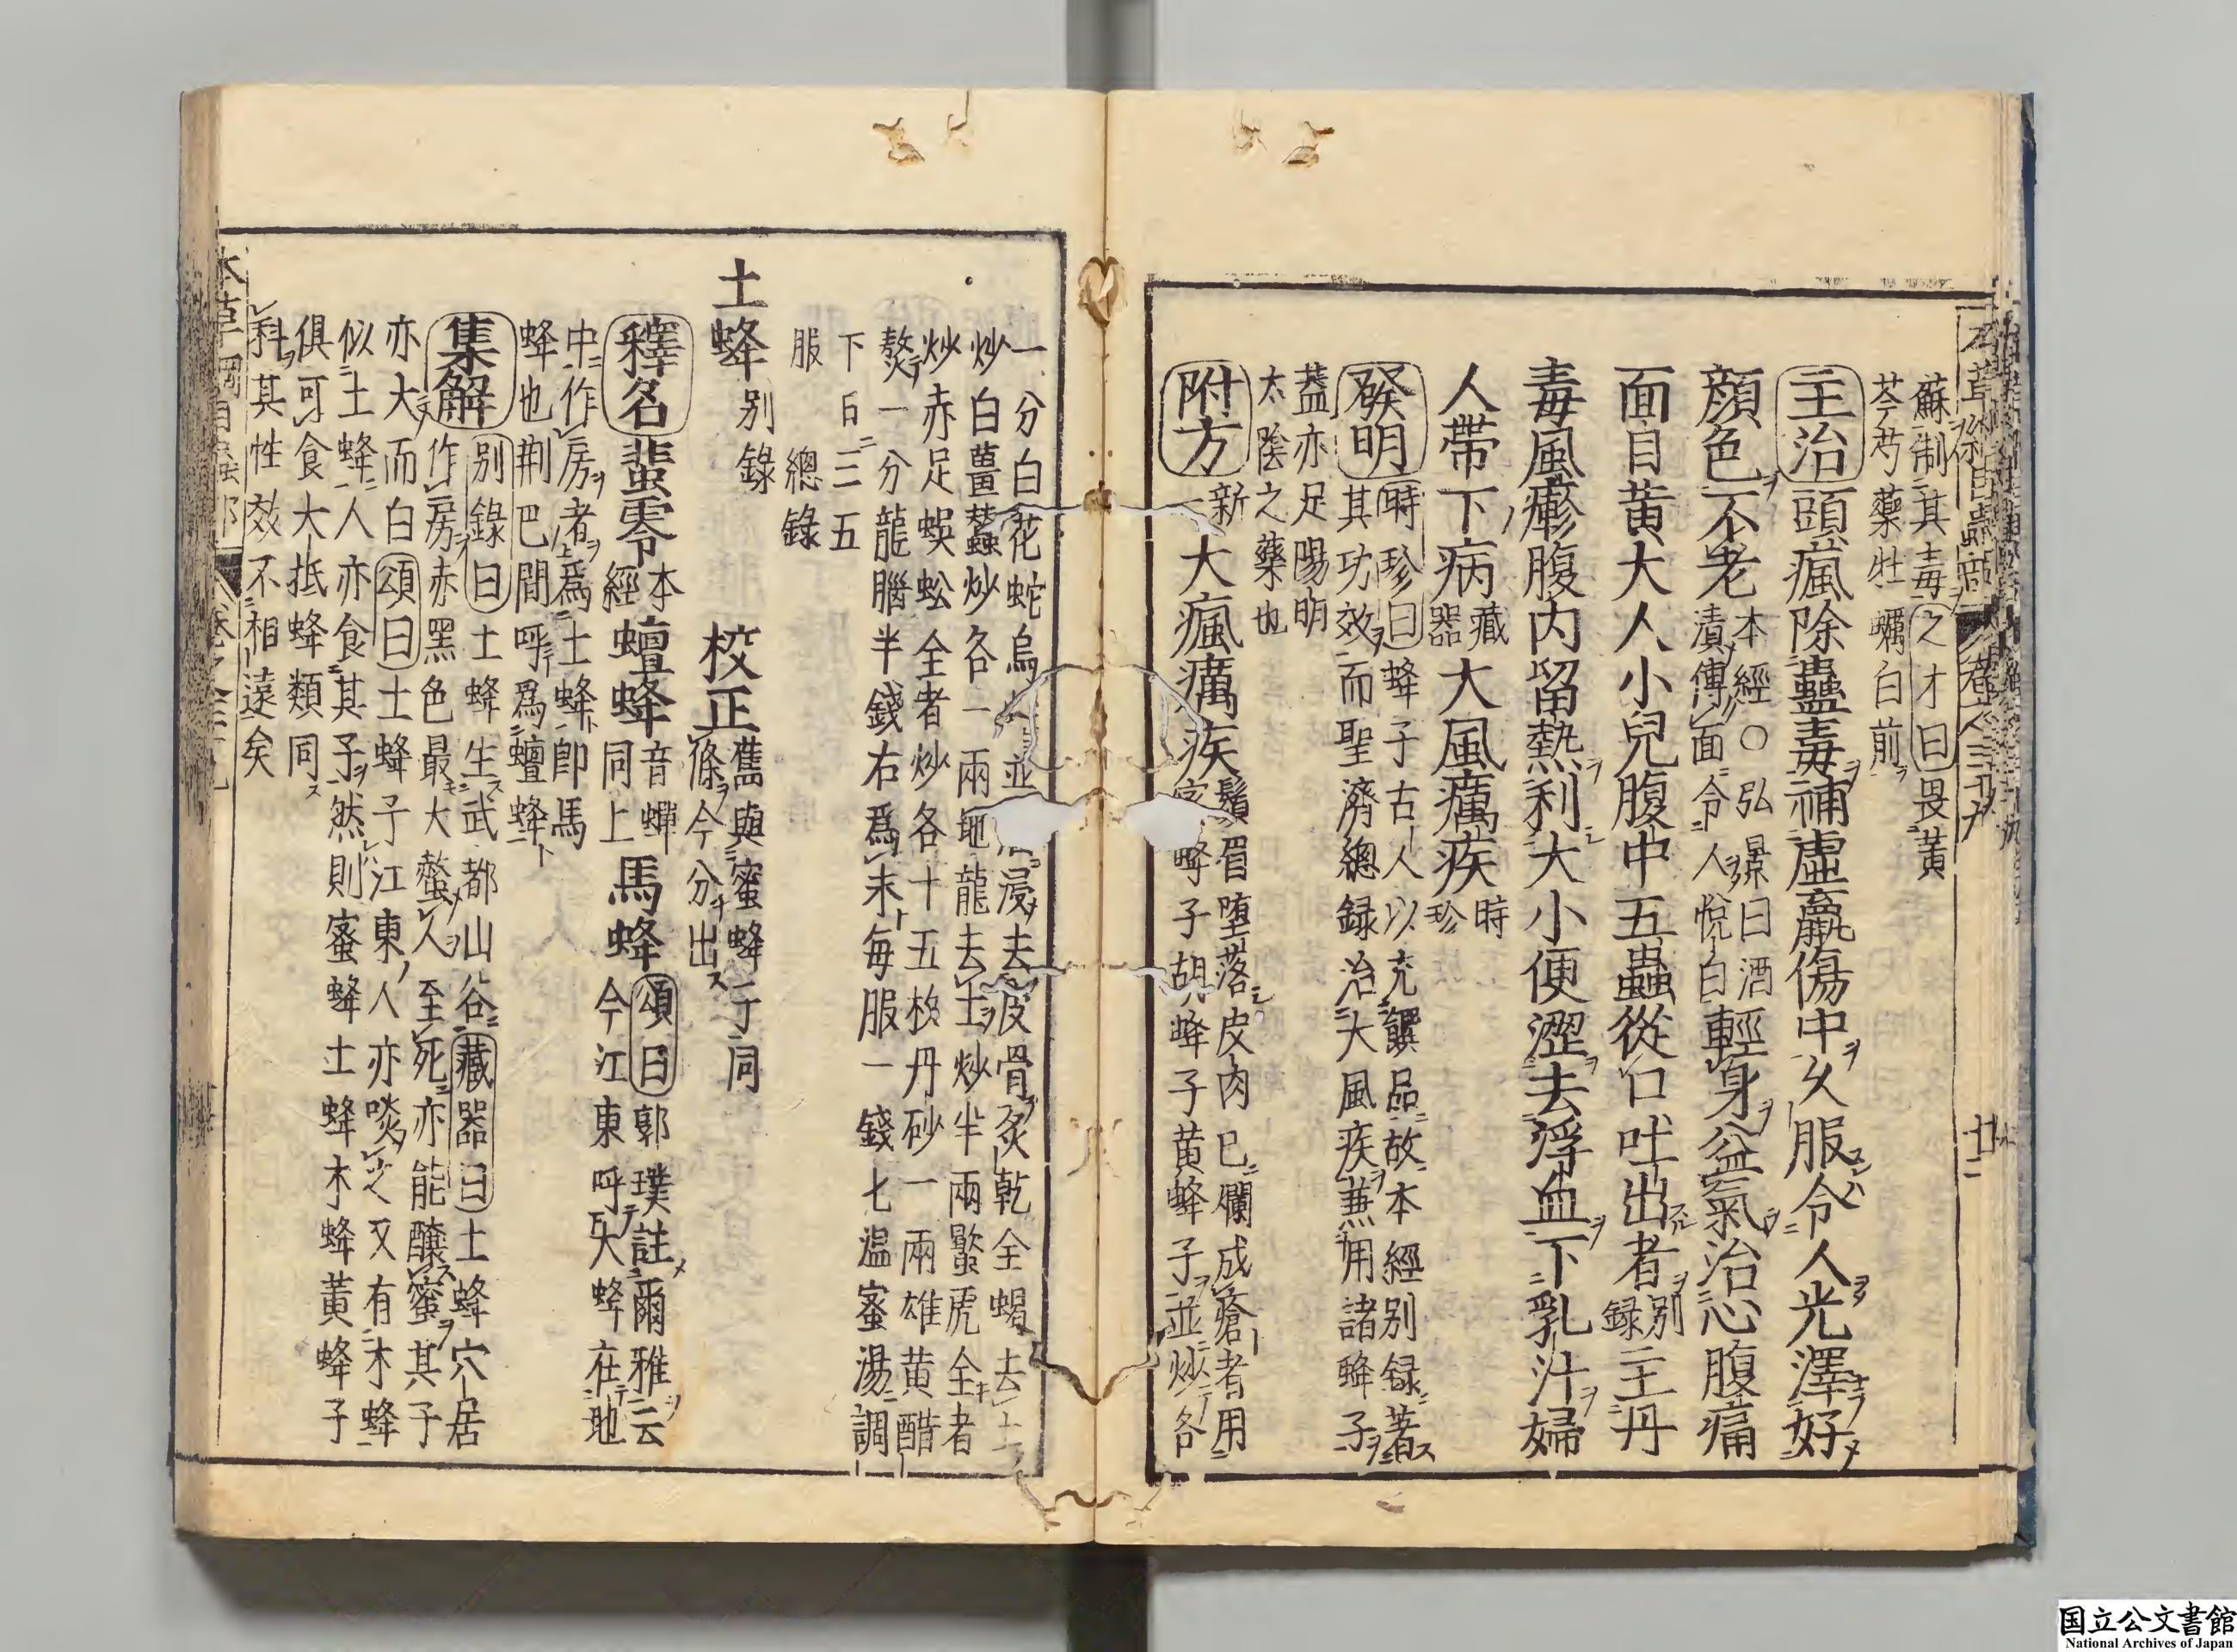 蘇制其毒之才曰畏黃
芩芍藥牡蠣白前
主治頭瘋除蠱毒補虛羸傷中久服令人光澤好
顏色不老本經〇弘景曰酒
漬傅面令人悅白輕身益氣治心腹痛
面目黃大人小兒腹中五蟲從口吐出者別
録主丹
毒風𤺋腹内留熱利大小便澀去浮血下乳汁婦
人帶下病藏
器大風癘疾時
珍
發明時珍曰蜂子古人以充饌品故本經別録著
其功效而聖濟總録治大風疾兼用諸蜂子
蓋亦足陽明
太陰之藥也
附方新
一大瘋癘疾鬚眉堕落皮肉已爛成瘡者用
蜂子胡蜂子黄蜂子並炒各
一分白花蛇烏並浸去皮骨炙乾全蝎去土
炒白薑蠶炒各一兩地龍去土炒半兩蠍虎全者
炒赤足蜈蚣全者炒各十五枚丹砂一兩雄黄醋
熬一分龍腦半錢右爲末每服一錢七温蜜湯調
下日三五
服 總錄
土蜂別錄 校正舊與蜜蜂子同
條今分出
釋名蜚零本
經蟺蜂音蟬
同上馬蜂頌曰郭璞註爾雅云
今江東呼大蜂在地
中作房者爲土蜂卽馬
蜂也荆巴間呼爲蟺蜂
集解別錄曰土蜂生武都山谷藏器曰土蜂穴居
作房赤黑色最大螫人至死亦能釀蜜其子
亦大而白頌曰土蜂子江東人亦啖之又有木蜂
似土蜂人亦食其子然則蜜蜂土蜂木蜂黄蜂子
俱可食大抵蜂類同
科其性效不相遠矣
廿二
国立公文書館
National Archives of Japan